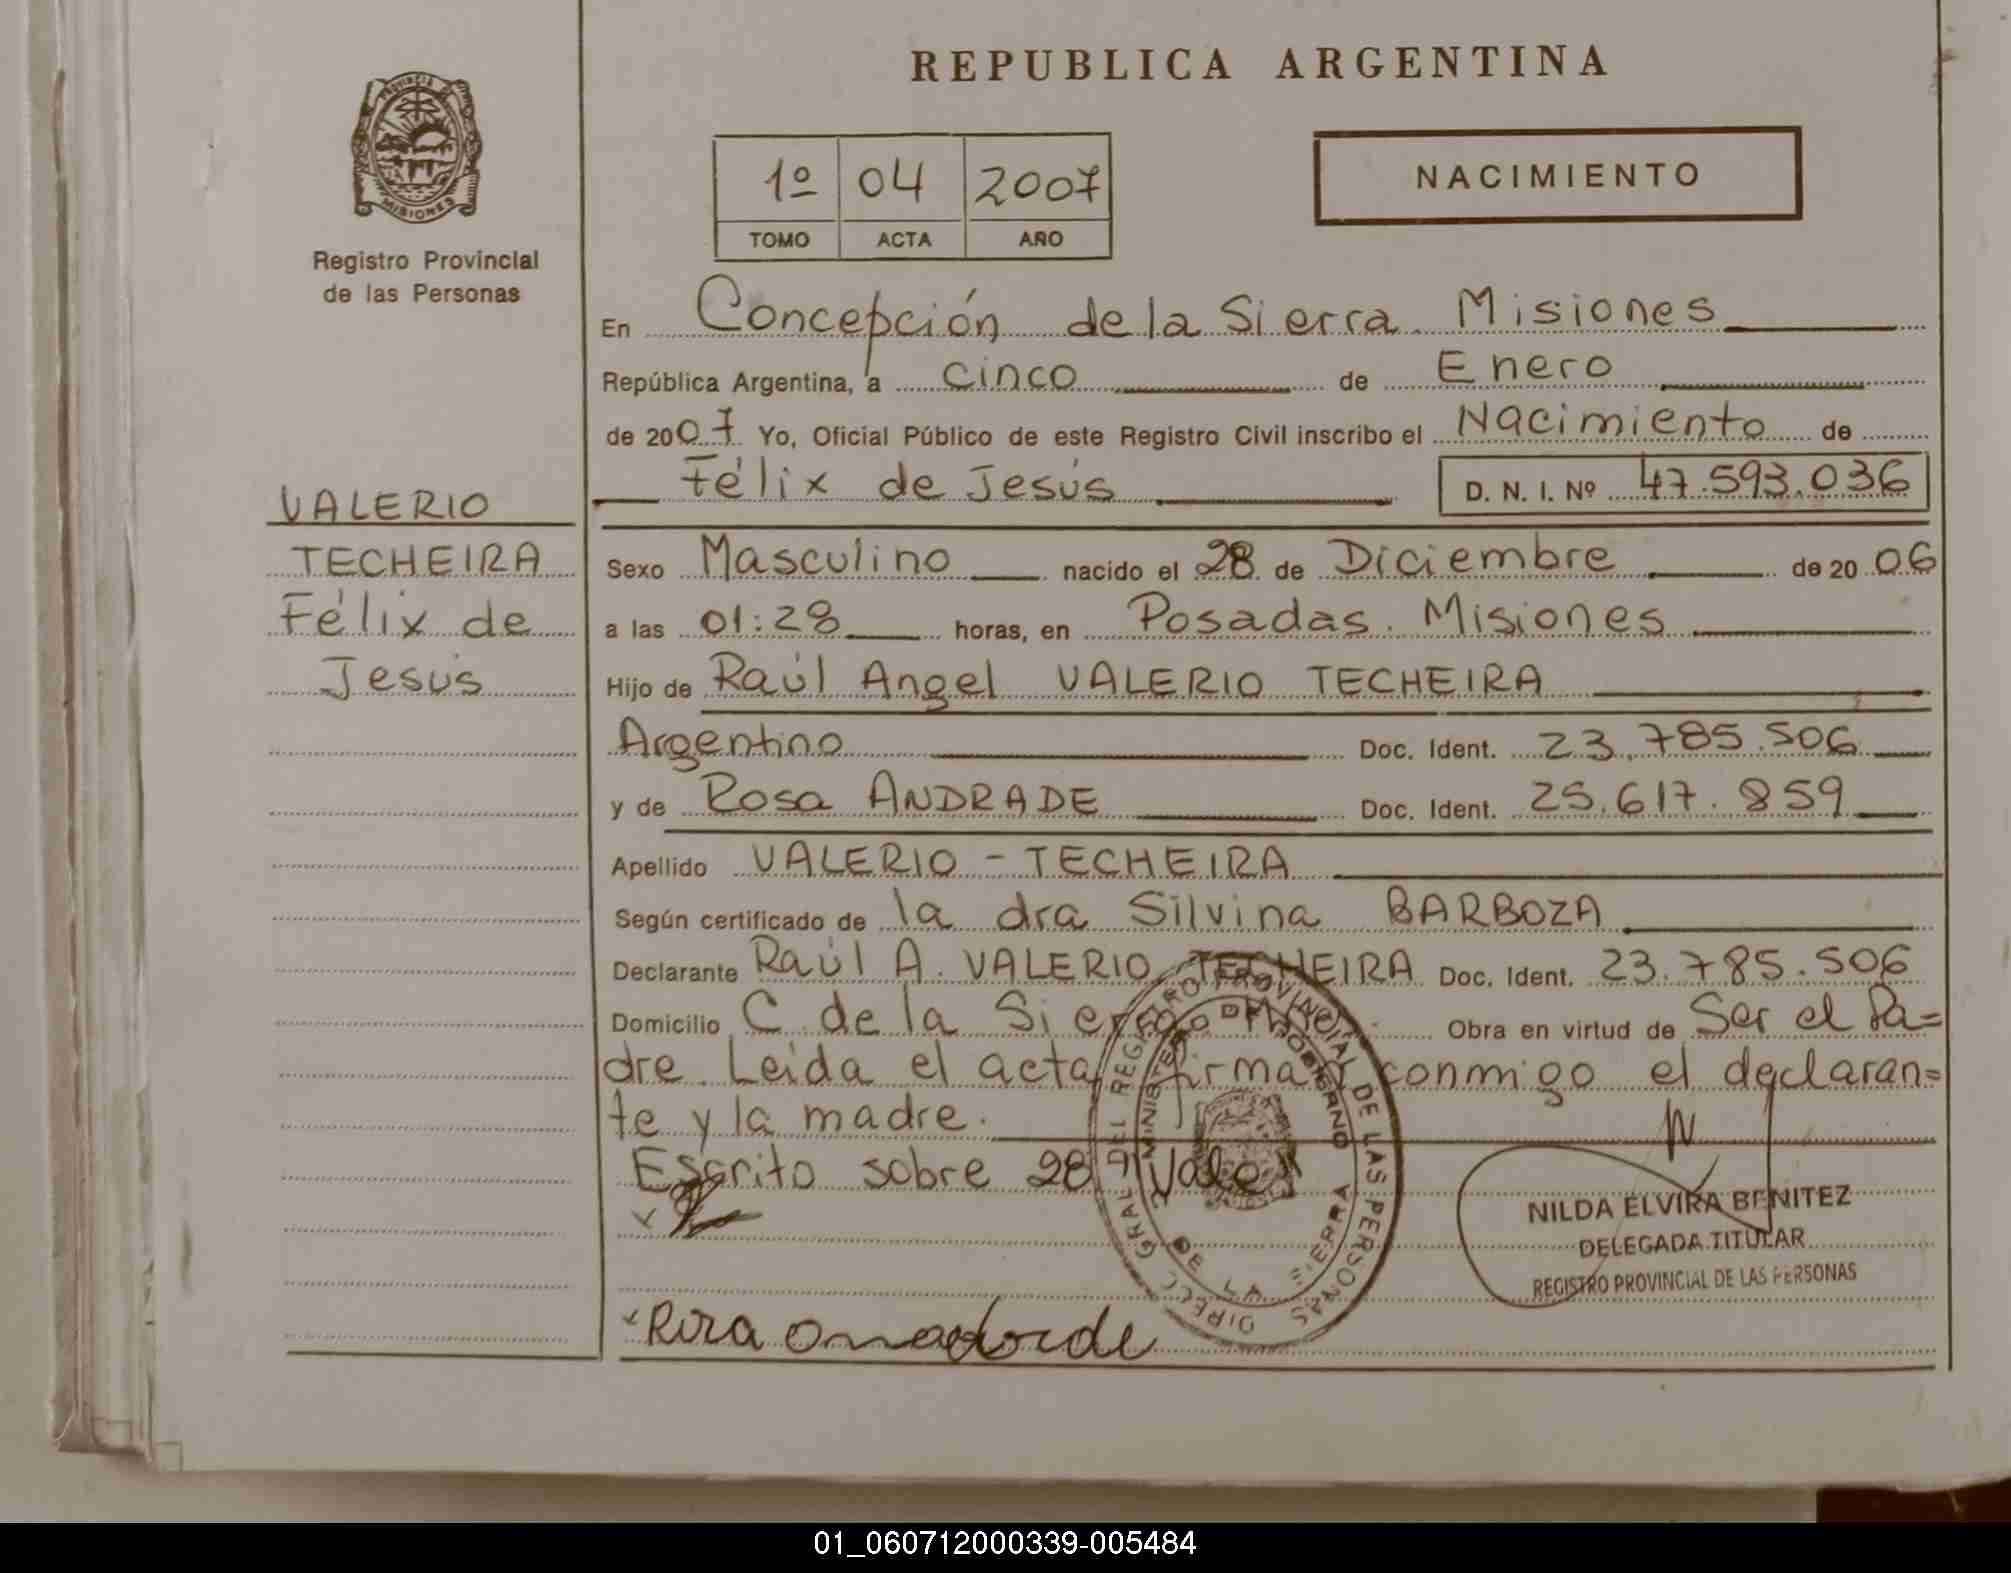 REPUBLICA ARGENTINA
PROVINCIA DE
MISIONES
Registro Provincial
de las Personas
1º 04 2007
TOMO ACTA AÑO
NACIMIENTO
En Concepción de la Sierra. Misiones
República Argentina, a cinco de Enero
de 2007 Yo, Oficial Público de este Registro Civil inscribo el Nacimiento de
Félix de Jesús D. N. I. Nº 47.593.036
VALERIO
TECHEIRA
Félix de
Jesús
Sexo Masculino nacido el 28 de Diciembre de 2006
a las 01:28 horas, en Posadas. Misiones
Hijo de Raúl Angel VALERIO TECHEIRA
Argentino Doc. Ident. 23.785.506
y de Rosa ANDRADE Doc. Ident. 25.617.859
Apellido VALERIO - TECHEIRA
Según certificado de la dra Silvina BARBOZA
Declarante Raúl A. VALERIO TECHEIRA Doc. Ident. 23.785.506
Domicilio C. de la Sierra Obra en virtud de Ser el Pa=
dre. Leida el acta firman conmigo el declaran=
te y la madre.
Escrito sobre 28 Vale
DIRECC GRAL DEL REGISTRO PROVINCIAL DE LAS PERSONAS
MINISTERIO DE GOBIERNO
DE LA SIERRA
NILDA ELVIRA BENITEZ
DELEGADA TITULAR
REGISTRO PROVINCIAL DE LAS PERSONAS
01_060712000339-005484